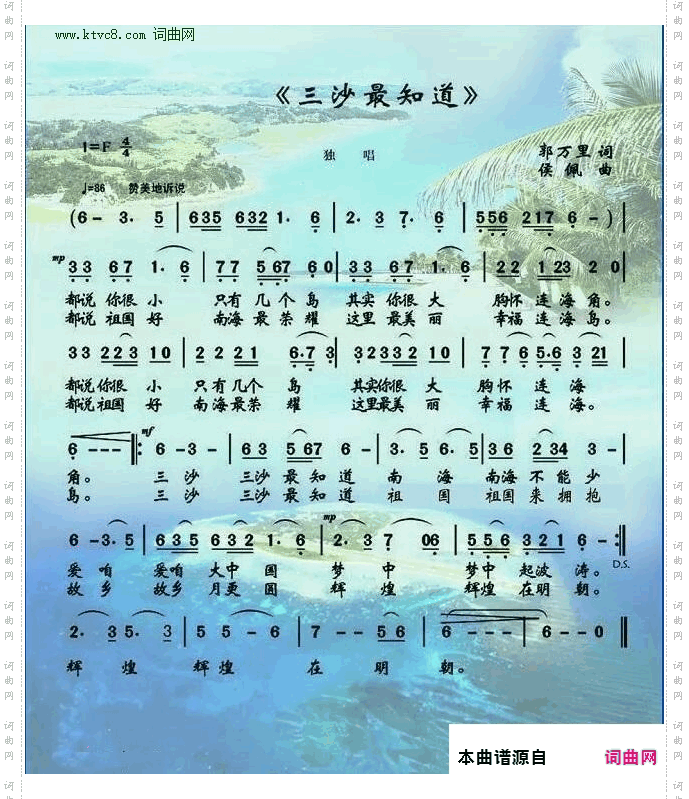 www.ktvc8.com 词曲网
《三沙最知道》
1=F 4/4
独 唱
郭万里 词
侯 佩 曲
♩=86 赞美地诉说
(6 - 3· 5 | 635 632 1· 6 | 2· 3 7· 6 | 556 217 6 - ) |
mp
33 67 1· 6 | 77 567 60 | 33 67 1· 6 | 22 123 2 0 |
都说 你很 小 只有 几 个 岛 其实 你很 大 胸怀 连 海 角。
都说 祖国 好 南海 最 荣 耀 这里 最美 丽 幸福 连 海 岛。
33 223 10 | 2 2 21 6·7 3 | 32332 10 | 7 76 5·6 3 21 |
都说你很 小 只 有几个 岛 其实你很 大 胸 怀 连 海
都说祖国 好 南 海最荣 耀 这里最美 丽 幸 福 连 海。
mf
6 - - - ‖: 6 - 3 - | 6 3 567 6 - | 3· 5 6· 5 | 36 234 3 - |
角。 三 沙 三沙 最 知 道 南 海 南海 不 能 少
岛。 三 沙 三沙 最 知 道 祖 国 祖国 来 拥 抱
mp
6 -3· 5 | 635 632 1· 6 | 2· 3 7 06 | 556 321 6 - :‖
D.S.
爱 咱 爱咱 大 中 国 梦 中 梦中 起 波 涛。
故 乡 故乡 月 更 圆 辉 煌 辉煌 在 明 朝。
2· 3 5· 3 | 5 5 - 6 | 7 - - 5 6 | 6 - - - | 6 - - 0 ‖
辉 煌 辉 煌 在 明 朝。
本曲谱源自 词曲网